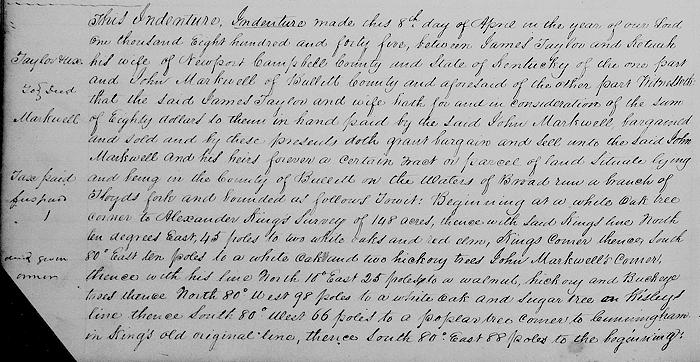 This Indenture, Indenture made this 8th day of April in the year of our Lord
one thousand Eight hundred and forty five, between James Taylor and
his wife of Newport Campbell County and State of Kentucky of the one part
and John Markwell of Bullitt County and aforesaid of the other part Witnesseth
that the said James Taylor and wife hath for and in consideration of the sum
of Eighty dollars to them in hand paid by the said John Markwell, bargained
and sold and by these presents doth grant bargain and sell unto the said John
Markwell and his heirs forever a certain tract or parcel of land Situate lying
and being in the County of Bullitt on the Waters of Broad run a branch of
Floyds fork and bounded as follows Towit: Beginning at a white Oak tree
corner to Alexander Kings Survey of 148 acres, thence with said Kings line North
ten degrees East, 45 poles to two white oaks and red elm, Kings Corner thence, South
80° East ten poles to a white Oak and two hickory trees John Markwell's Corner,
thence with his line North 10° East 25 poles to a walnut, hickory and Buckeye
trees thence North 80° West 98 poles to a white Oak and Sugar tree on
line thence South 80° West 66 poles to a poplar tree corner to Cunningham
in King's old original line, thence South 80° East 88 poles to the beginning
Taylor &ux
Deed
Markwell
Tax paid
1
given